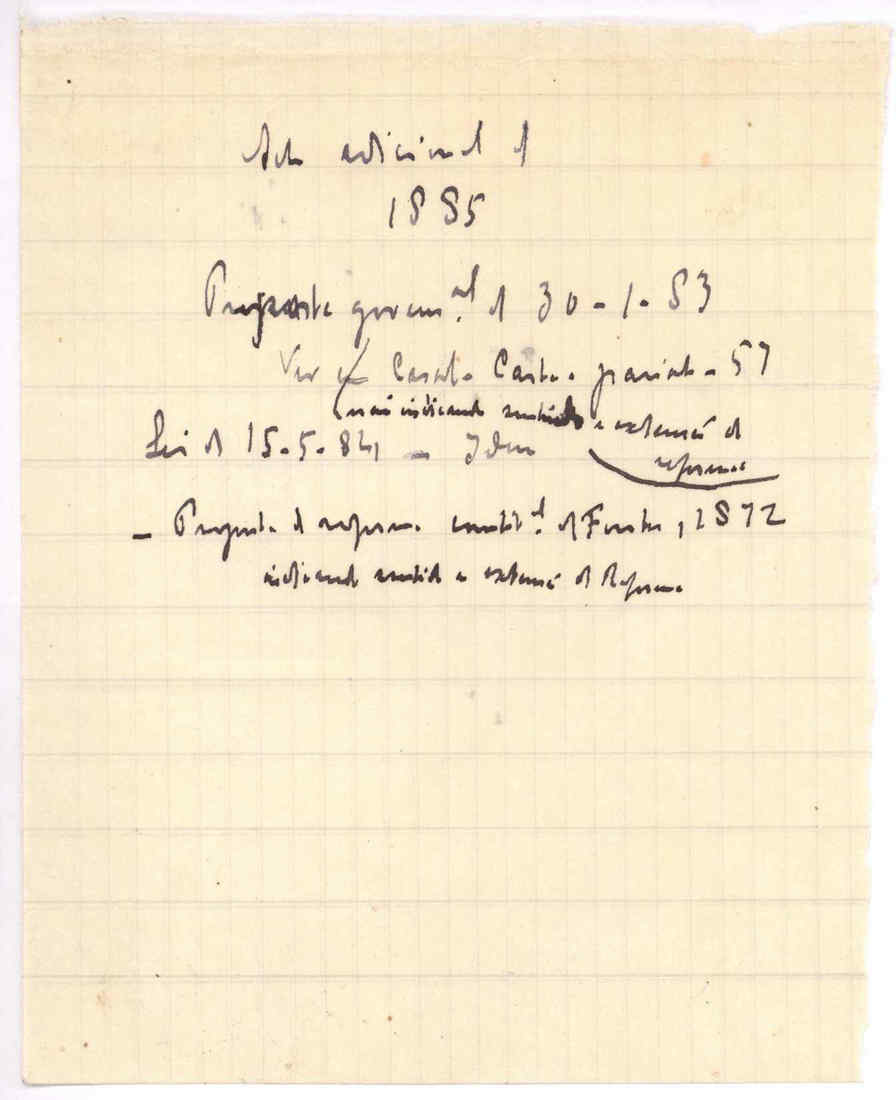 Acto adicional de
1885
Proposta governal de 30-1-83
Ver Canal. Carta. 57
não indicando sentido e extensão de
reforma
Lei de 15-5-84 - Idem
- Proposta de reforma constital de Fontes, 1872
indicando sentido e extensão de Reforma